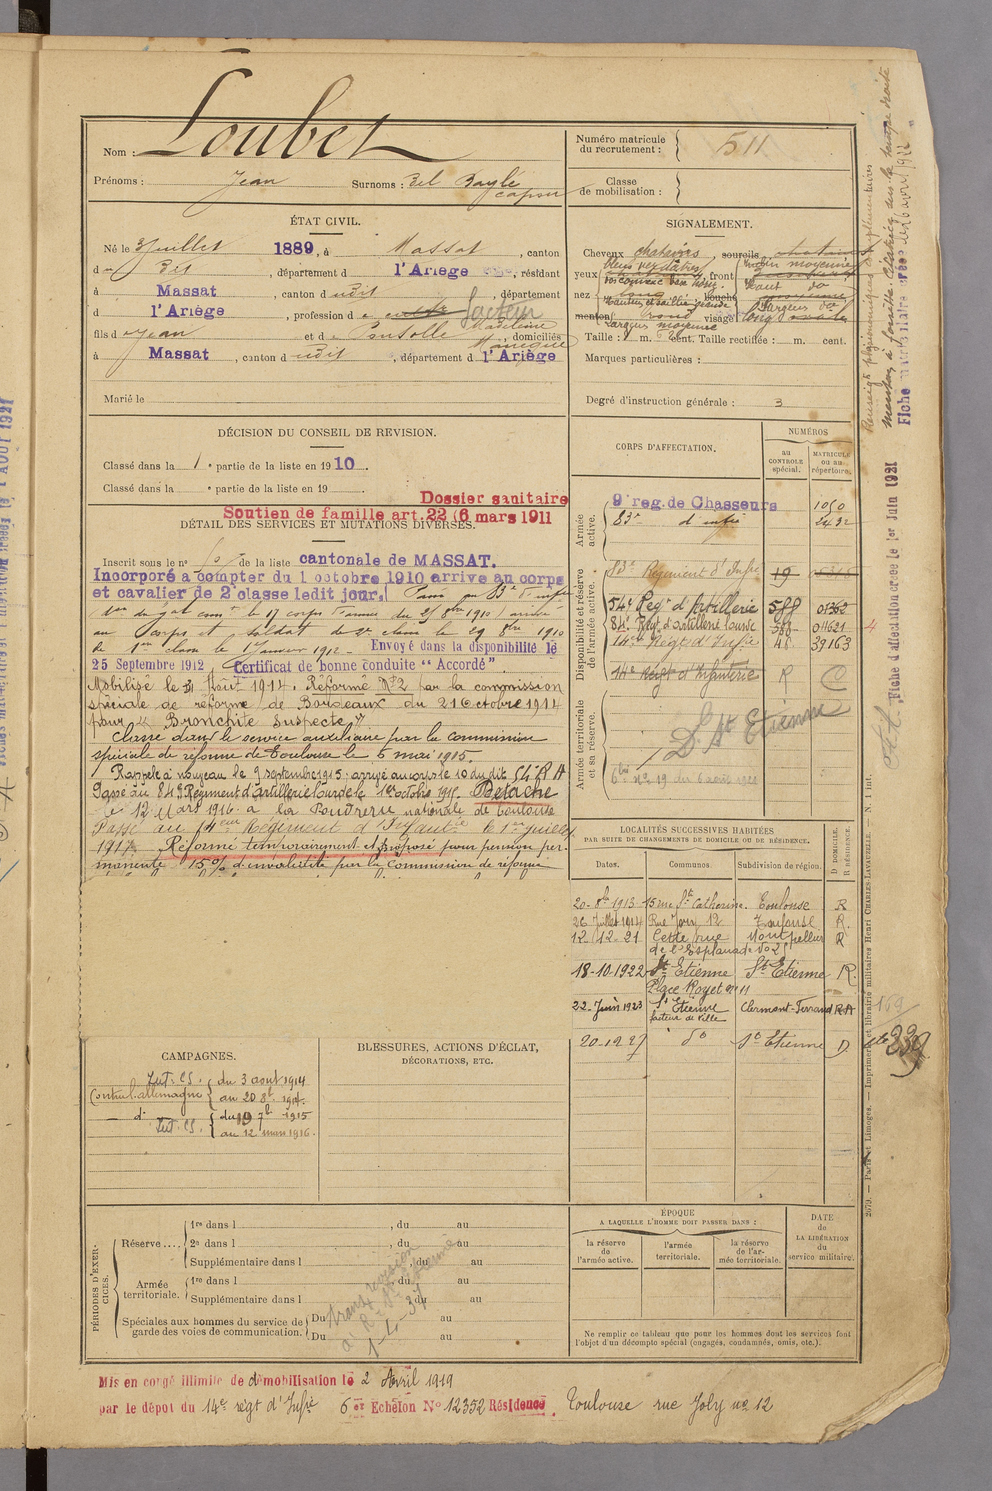 Nom : Loubet
Prénoms : Jean Surnoms : Bel Baylé
capou
ÉTAT CIVIL.
Né le 3 Juillet 1889, à Massat, canton
du dit, département d l'Ariège, résidant
à Massat, canton dudit, département
d l'Ariège, profession de facteur
fils de Jean et de Madeleine, domiciliés
à Massat, canton dudit, département d l'Ariège
Marié le
DÉCISION DU CONSEIL DE REVISION.
Classé dans la 1e partie de la liste en 1910.
Classé dans la e partie de la liste en 19
Dossier sanitaire
Soutien de famille art. 22 (6 mars 1911
DÉTAIL DES SERVICES ET MUTATIONS DIVERSES.
Inscrit sous le n° de la liste cantonale de MASSAT.
Incorporé a compter du 1 octobre 1910 arrive au corps
et cavalier de 2e classe ledit jour. Passé au 83e d'infie
du 17e corps d'armée du 25 8bre 1910) arrivé
au corps et soldat de 2e classe le 29 8bre 1910
de 1ere classe le 1 Janvier 1912 - Envoyé dans la disponibilité le
25 Septembre 1912. Certificat de bonne conduite "Accordé".
Mobilisé le 3 Août 1914. Réformé N°2 par la commission
spéciale de réforme de Bordeaux du 21 Octobre 1914
pour "Bronchite Suspecte"
Classé dans le service auxiliaire par la commission
spéciale de réforme de Toulouse le 5 mai 1915.
Rappelé à nouveau le 9 septembre 1915; arrivé au corps le 10 du dit 54e R A
Passé au 84e Régiment d'artillerie lourde le 1er octobre 1915. Détaché
le 12 Mars 1916 à la Poudrerie nationale de Toulouse
Passé au 14eme Régiment d'Infanterie le 1er juillet
1917. Réformé temporairement et proposé pour pension per-
manente 15% d'invalidité par la Commission de réforme
CAMPAGNES.
Int. CS. du 3 aout 1914
Contre l'allemagne au 20 8bre 1914.
- d° - du 9 7bre 1915
Int. CS. au 12 mars 1916.
BLESSURES, ACTIONS D'ÉCLAT,
DÉCORATIONS, ETC.
PÉRIODES D'EXER-
CICES.
Réserve.... 1re dans l , du au
2e dans l , du au
Supplémentaire dans l , du au
Armée territoriale. 1re dans l , du au
Supplémentaire dans l , du au
Spéciales aux hommes du service de Du au
garde des voies de communication. Du au
Mis en congé illimité de démobilisation le 2 Avril 1919
par le dépôt du 14e régt d'Infie 6e Echelon N° 12352 Résidence Toulouse rue Joly no 12
Numéro matricule
du recrutement : 511
Classe
de mobilisation :
SIGNALEMENT.
Cheveux chatains, sourcils chatains
yeux bleus verdâtres, front
nez bouche
menton rond visage long
Taille : 1 m. cent. Taille rectifiée : m. cent.
Marques particulières :
Degré d'instruction générale : 3
CORPS D'AFFECTATION.
NUMÉROS
au
CONTROLE
spécial.
MATRICULE
ou au
répertoire.
Armée
active.
9e reg. de Chasseurs 1050
83e d'infie 2432
Disponibilité et réserve
de l'armée active.
83e Régiment d'Infie 19
54e Regt d'Artillerie 588 01362
84e Regt d'artillerie lourde 588 011621
14e Regt d'Infie 48 39163
14e Regt d'Infanterie R C
Armée territoriale
et sa réserve.
D. St Etienne
LOCALITÉS SUCCESSIVES HABITÉES
PAR SUITE DE CHANGEMENTS DE DOMICILE OU DE RÉSIDENCE.
Dates. Communes. Subdivision de région. D DOMICILE. R RÉSIDENCE.
20-8bre 1913 15 rue Ste Catherine. Toulouse R
26 Juillet 1914 Rue Joly 12 Toulouse R.
12/12-21 Cette rue Montpellier R
de l'Esplanade No 25
18-10-1922 St Etienne St Etienne R.
Place Royet no 11
22-Juin 1923 St Etienne Clermont-Ferrand RA
facteur de ville
20-1-27 d° St Etienne D
ÉPOQUE
A LAQUELLE L'HOMME DOIT PASSER DANS :
la réserve
de l'armée active.
l'armée
territoriale.
la réserve
de l'ar-
mée territoriale.
DATE
de
LA LIBÉRATION
du
service militaire.
Ne remplir ce tableau que pour les hommes dont les services font
l'objet d'un décompte spécial (engagés, condamnés, omis, etc.).
2679. — Paris et Limoges. — Imprimerie et librairie militaires Henri CHARLES-LAVAUZELLE. — N. 1 int.
Fiche d'affectation créée le 1er Juin 1921
169
239